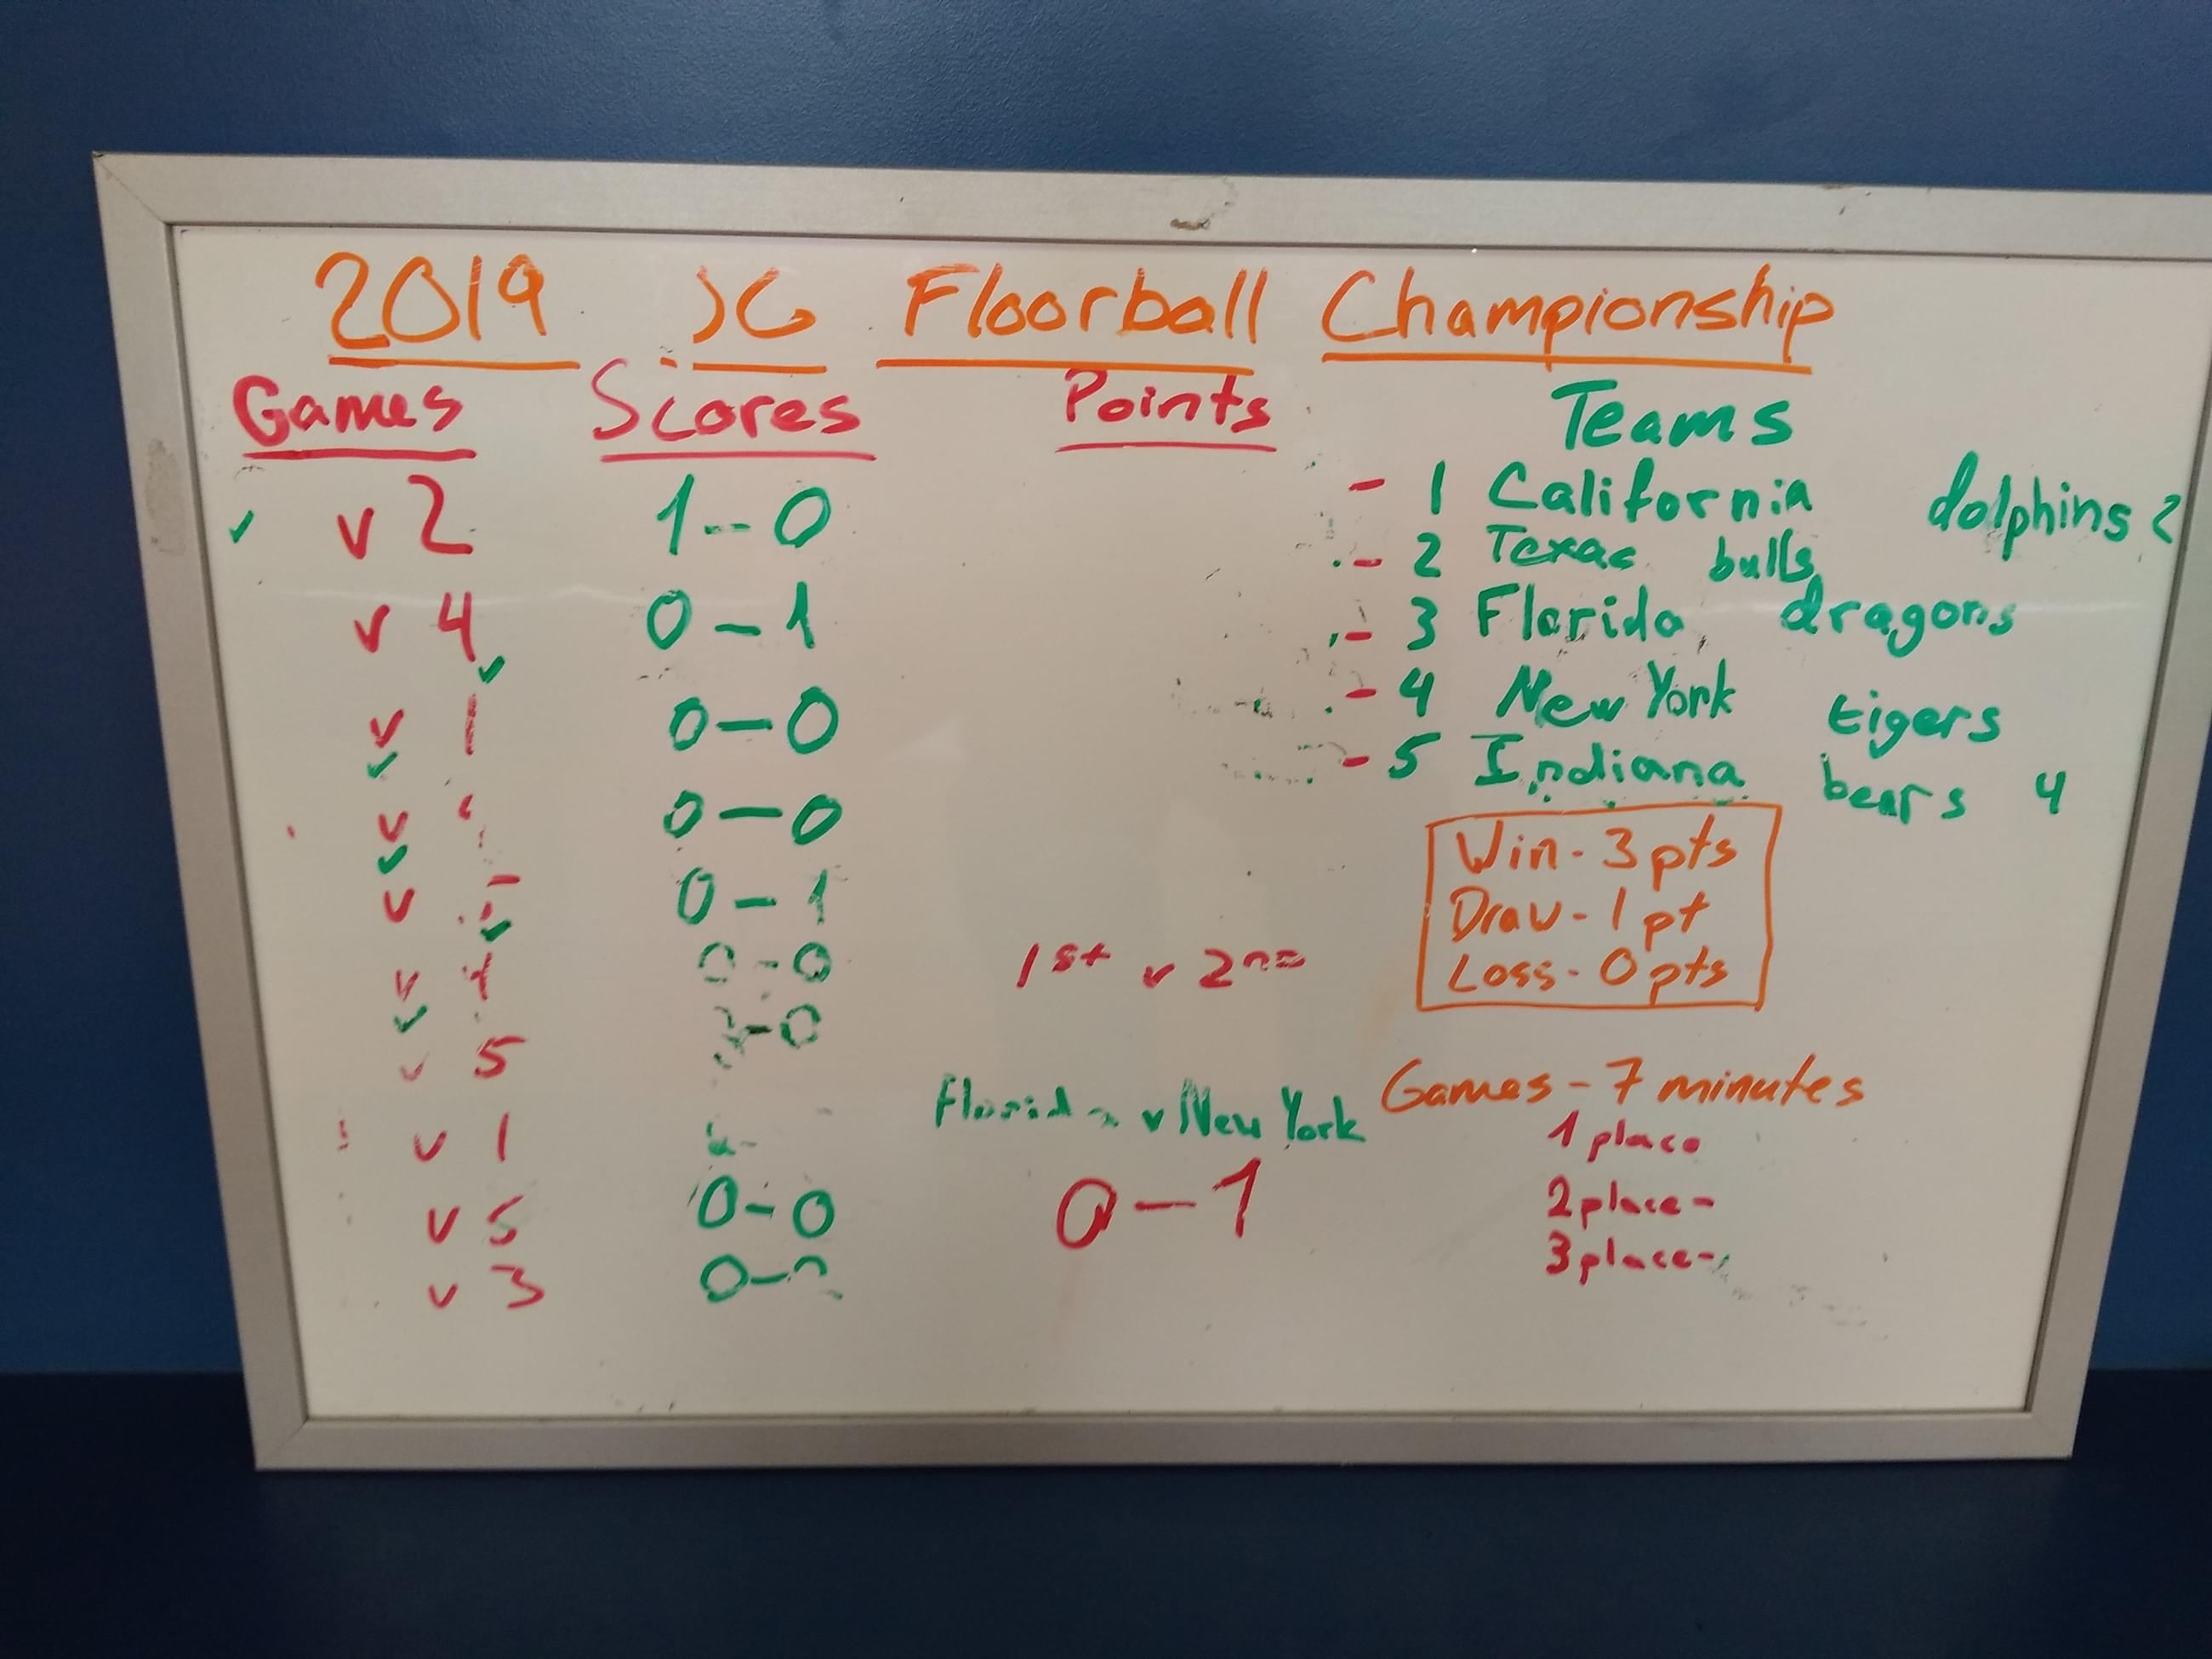 2019 JG Floorball Championship
Games Scores Points Teams
v 2 1--0
v 4 0-1
v 1 0-0
v 0-0
v 0-1
v 0-0
v 5 -0
v 1
v 5 0-0
v 3 0-
1st v 2nd
Florida v New York
0-1
- 1 California dolphins 2
- 2 Texas bulls
- 3 Florida dragons
- 4 New York tigers
- 5 Indiana bears 4
Win - 3 pts
Draw - 1 pt
Loss - 0 pts
Games - 7 minutes
1 place
2 place -
3 place -